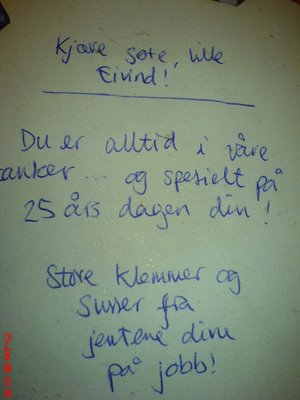 Kjære søte, lille
Eivind!
Du er alltid i våre
tanker... og spesielt på
25 års dagen din!
Store Klemmer og
Susser fra
jentene dine
på jobb!